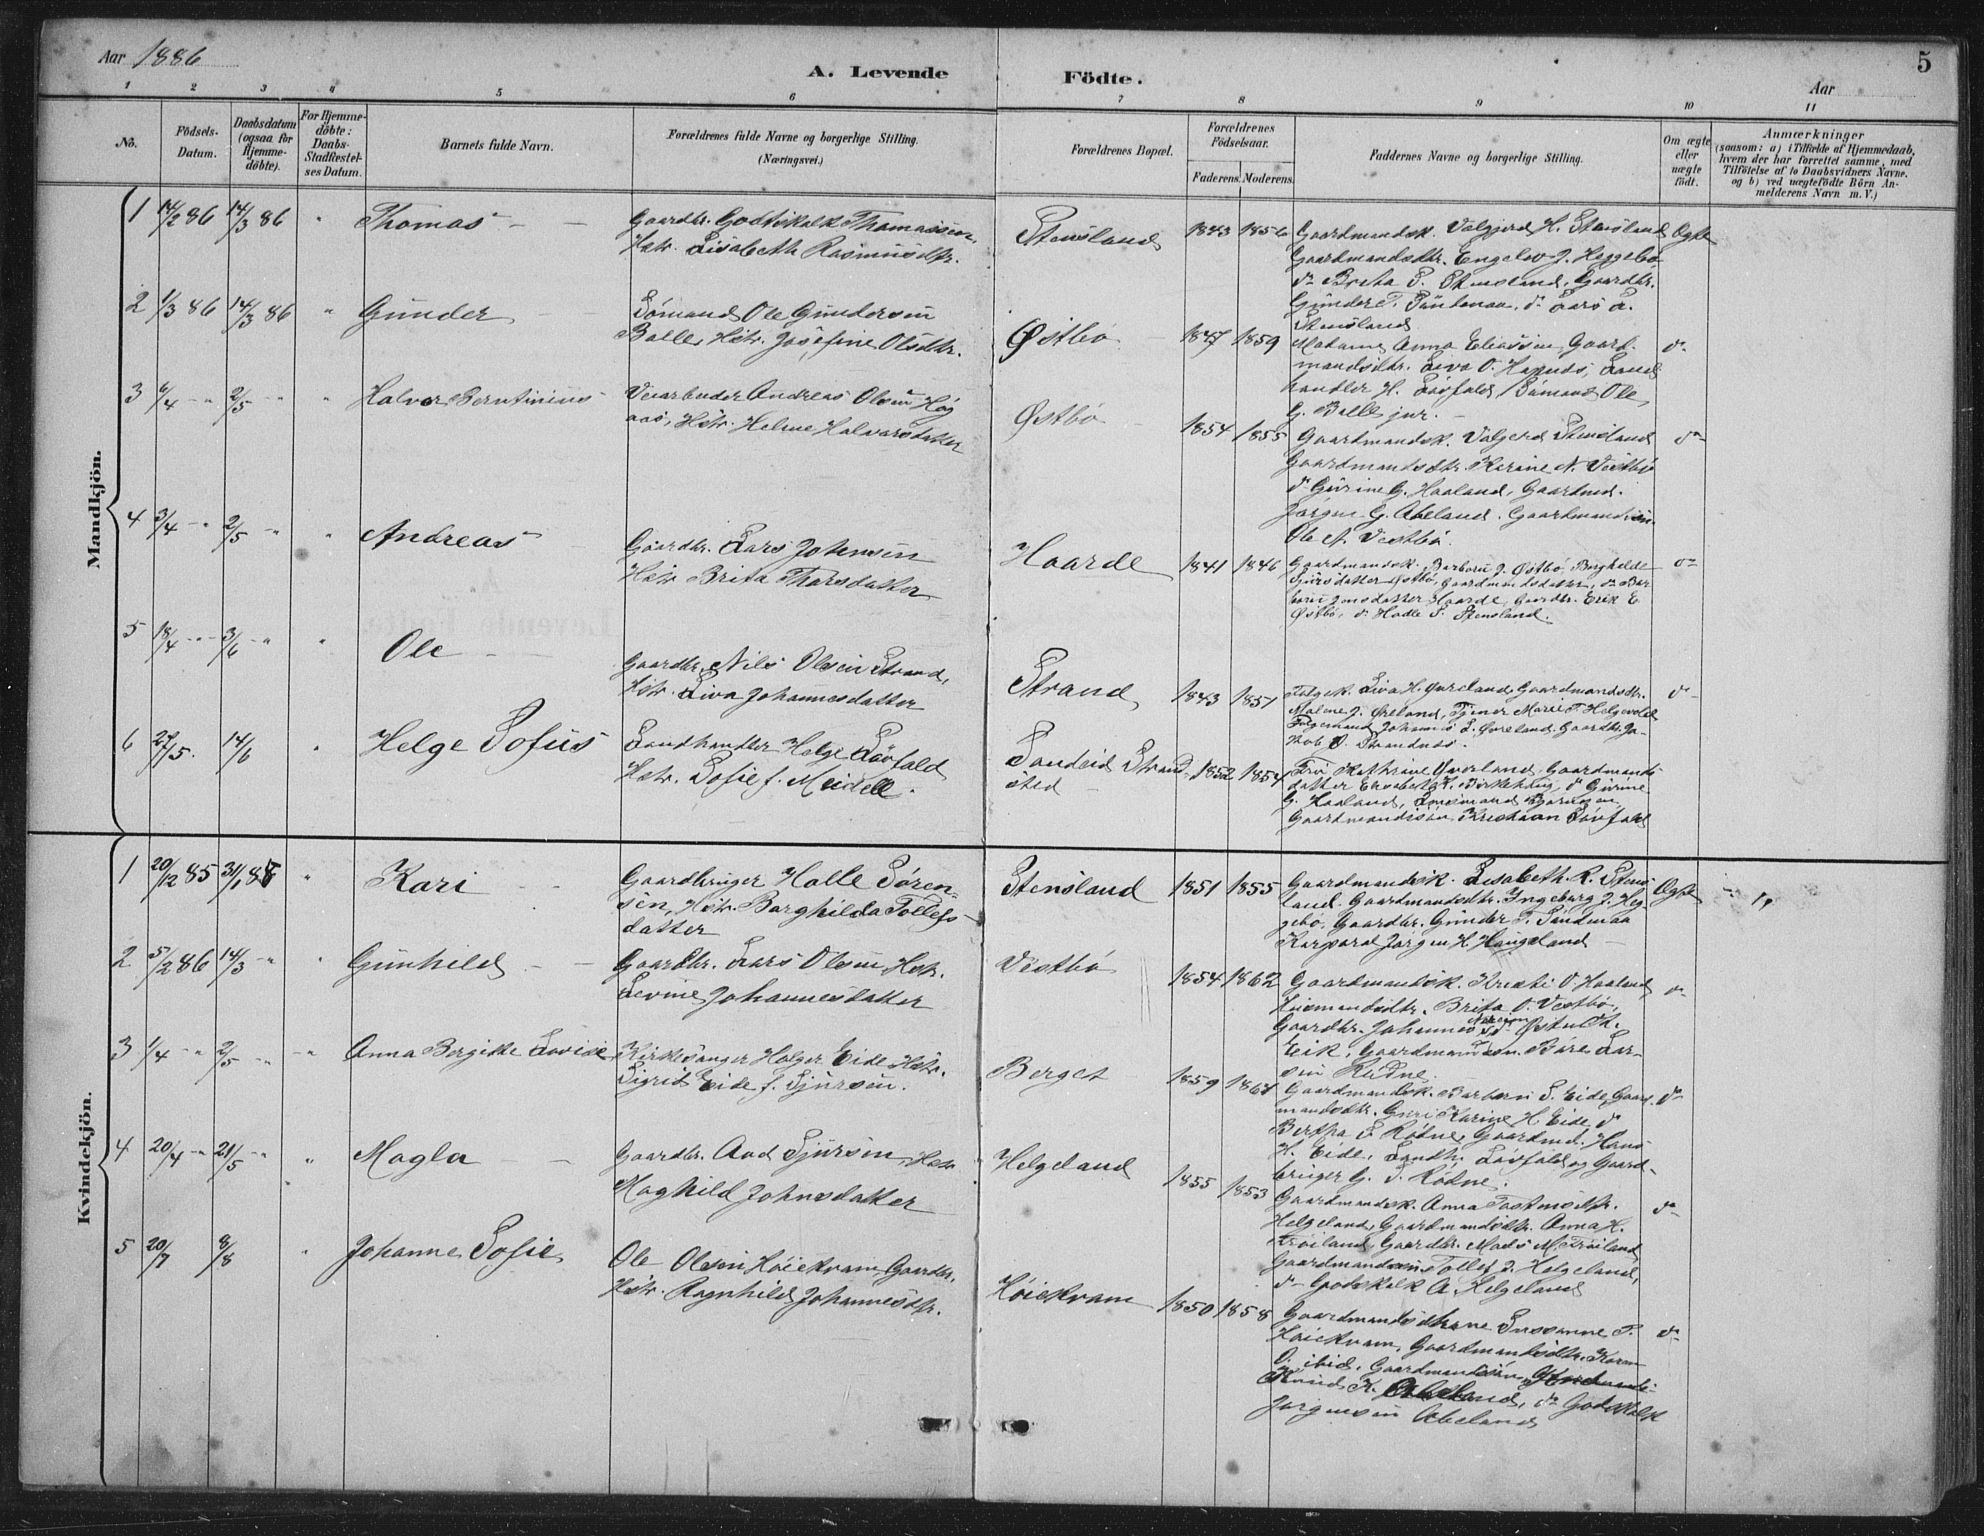 Aar 1886
A. Levende
Födte.
5
Aar
1 2 3 4 5 6 7 8 9 10 11
No.
Födsels-
Datum.
Daabsdatum
(ogsaa for
Hjemme-
döbte).
For Hjemme-
döbte:
Daabs-
Stadfæstel-
ses Datum.
Barnets fulde Navn.
Forældrenes fulde Navne og borgerlige Stilling.
(Næringsvei.)
Forældrenes Bopæl.
Forældrenes
Födselsaar.
Faderens. Moderens.
Faddernes Navne og borgerlige Stilling.
Om ægte
eller
uægte
födt.
Anmærkninger
(saasom: a) i Tilfælde af Hjemmedaab,
hvem der har forrettet samme, med
Tilföielse af to Daabsvidners Navne.
og b) ved uægtefödte Börn An-
melderens Navn m. V.)
Mandkjön.
1 14/2 86 14/3 86 " Thomas
Gaardbr. Godtskalk Thomassen,
Hstr. Lisabeth Rasmusdtr.
Stensland 1843 1856
Gaardmandsk. Valgjerd H. Stensland
Gaardmandsdtr. Engelev J. Heggebø
do Brita S. Stensland, Gaardbr.
Gunder T. do Lars
Stensland
Ægte
2 1/3 86 14/3 86 " Gunder
Sømand Ole Gundersen
Balle, Hstr. Josefine Olsdtr.
Østbø 1847 1859
Madame Anna Eliassen, Gaard-
mandsdtr. Siva O. Land-
handler H. Løvfald, Sømand Ole
G. Balle jur.
do
3 6/4 - " 2/5 - " " Halvor Berntinius
Veiarbeider Andreas Olsen Høg
aas, Hstr. Helene Halvorsdatter
Østbø 1854 1855
Gaardmandsk. Valgerd Stensland
Gaardmandsdtr. Karine N. Vestbø
do Gurine G. Haaland, Gaardmd.
Jørgen G. Abeland. Gaardmandssøn
Ole A. Vestbø.
do
4 3/4 - " 2/5 - " " Andreas
Gaardbr. Lars Johnsen
Hstr. Brita Thorsdatter
Haarde 1841 1846
Gaardmandsk. Barbara J. Østbø, Borghilde
Sjursdatter Østbø, Gaardmandsdatter, do Bar
bru Jonsdatter Haarde, Gaardbr. Erik E.
Østbø, do Hadle S. Stensland.
do
5 18/4 - " 3/6 - " " Ole
Gaardbr. Nils Olsen Strand,
Hstr. Siva Johannesdatter
Strand 1843 1857
Siva H. Øvreland, Gaardmandsdtr.
Malene J. Øvreland, Tjener Marie T. Helgevold
Johannes L. Øvreland. Gaardbr. Ja-
kob O. Strandnæs.
do
6 27/5. 14/6 " Helge Sofus
Landhandler Helge Løvfald
Hstr. Sofie f. Meidell.
Sandeid Strand-
sted
1852 1854
Frø. Kathrine Øverland, Gaardmands
datter Elisabeth K. do Gurine
G. Haaland,
Gaardmandssøn Kristian Løvfald
Kvindekjön.
1 20/12 85 31/1 86 " Kari
Gaardbruger Halle Søren-
sen, Hstr. Borghilda Tollefs-
datter
Stensland 1851 1855
Gaardmandsk. Lisabeth R. Stens
land. Gaardmandsdtr. Ingeborg J. Heg-
gebø, Gaardbr. Gunder T.
Korporal Jørgen H. Haugeland
Ægte
2 5/2 86 14/3 - " " Gunhild
Gaardbr. Lars Olsen, Hstr.
Levine Johannesdatter
Vestbø 1854 1862
Gaardmandsk. Kristi O. Haaland,
Husmandsdtr. Brita O. Vestbø,
Gaardbr. Johannes
Eik, Gaardmandssøn. Børe Lar-
sen Rødne.
do
3 1/4 - " 2/5 - " - " Anna Bergitte Lovise
Kirkesanger Holger Eide, Hstr.
Sigrid Eide f. Sjursen.
Berget 1859 1864
Gaardmandsk. Barbara S. Eide, Gaard-
mandsdtr. Guri Karine H. Eide, do
Bertha L. Rødne, Gaardmd. Hans
H. Eide, Landh. Løvfald og Gaard-
bruger G. T. Rødne.
do
4 20/4 - " 21/5 - " " Magla
Gaardbr. Aad Sjursen, Hstr.
Maghild Johnsdatter
Helgeland 1855 1853
Gaardmandsk. Anna
Helgeland, Gaardmandsdtr. Anna H.
Frøiland, Gaardbr. Mads M. Frøiland
Gaardmandssøn Tollef J. Helgeland,
do Godskalk A. Helgeland
do
5 20/7 8/8 " Johanne Sofie
Ole Olsen Høiekvam Gaardbr.
Hstr. Ragnhild Johannesdtr.
Høiekvam 1850 1858
Susanne T.
Høiekvam, Gaardmandsdtr. Karen
O. ibid, Gaardmandssøn
Knud K. Abeland, do Godskalk
Jørgensen Abeland
do